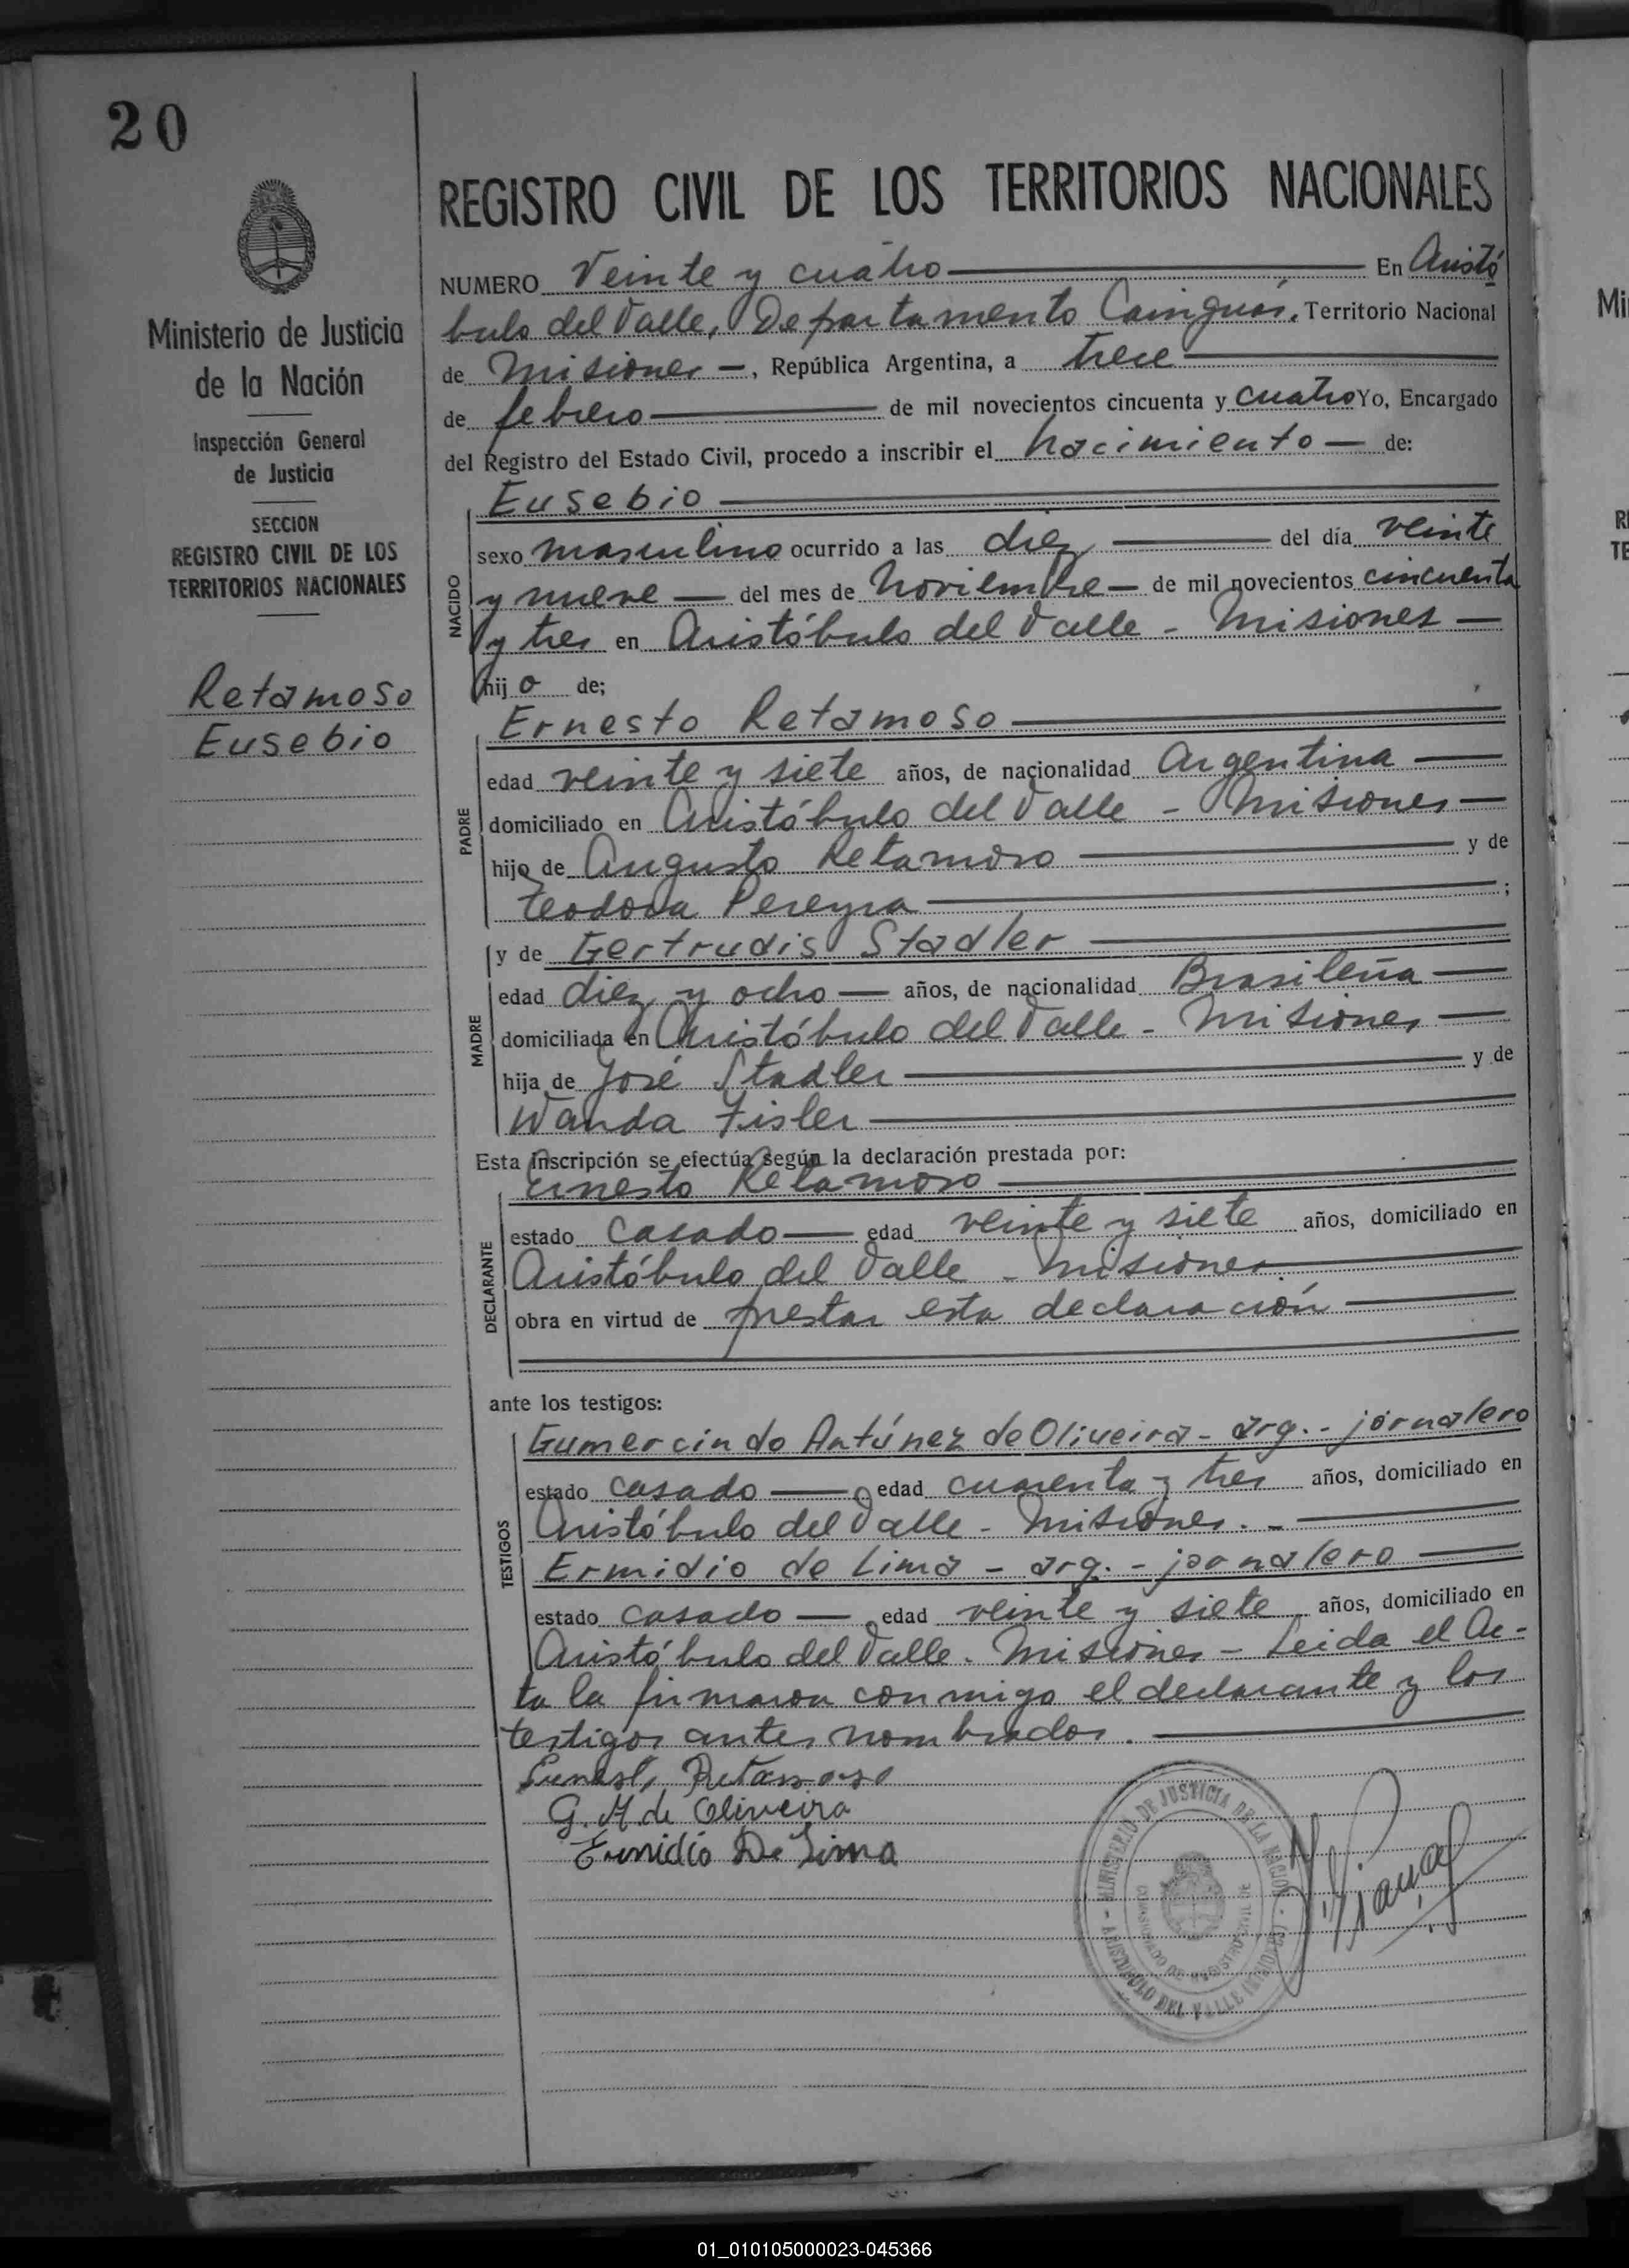 20
Ministerio de Justicia
de la Nación
Inspección General
de Justicia
SECCION
REGISTRO CIVIL DE LOS
TERRITORIOS NACIONALES
Retamoso
Eusebio
REGISTRO CIVIL DE LOS TERRITORIOS NACIONALES
NUMERO Veinte y cuatro En Aristó
bulo del Valle, Departamento Cainguás, Territorio Nacional
de Misiones —, República Argentina, a trece
de febrero de mil novecientos cincuenta y cuatro Yo, Encargado
del Registro del Estado Civil, procedo a inscribir el nacimiento — de:
NACIDO
Eusebio
sexo masculino ocurrido a las diez del día veinte
y nueve — del mes de Noviembre — de mil novecientos cincuenta
y tres en Aristóbulo del Valle - Misiones —
hijo de;
PADRE
Ernesto Retamoso
edad veinte y siete años, de nacionalidad Argentina
domiciliado en Aristóbulo del Valle - Misiones —
hijo de Augusto Retamoso y de
Teodora Pereyra ;
MADRE
y de Gertrudis Stadler
edad diez y ocho — años, de nacionalidad Brasileña
domiciliada en Aristóbulo del Valle - Misiones —
hija de José Stadler y de
Wanda Fisler
Esta inscripción se efectúa según la declaración prestada por:
DECLARANTE
Ernesto Retamoso
estado casado — edad veinte y siete años, domiciliado en
Aristóbulo del Valle - Misiones.
obra en virtud de prestar esta declaración
ante los testigos:
TESTIGOS
Gumercindo Antúnez de Oliveira - arg. - jornalero
estado casado — edad cuarenta y tres años, domiciliado en
Aristóbulo del Valle - Misiones. -
Ermidio de Lima - arg. - jornalero
estado casado — edad veinte y siete años, domiciliado en
Aristóbulo del Valle. Misiones - Leida el Ac-
ta la firmaron conmigo el declarante y los
testigos antes nombrados.
Ernesto Retamoso
G. A. de Oliveira
Ermidio De Lima
MINISTERIO DE JUSTICIA DE LA NACION
ARISTOBULO DEL VALLE (MISIONES)
01_010105000023-045366